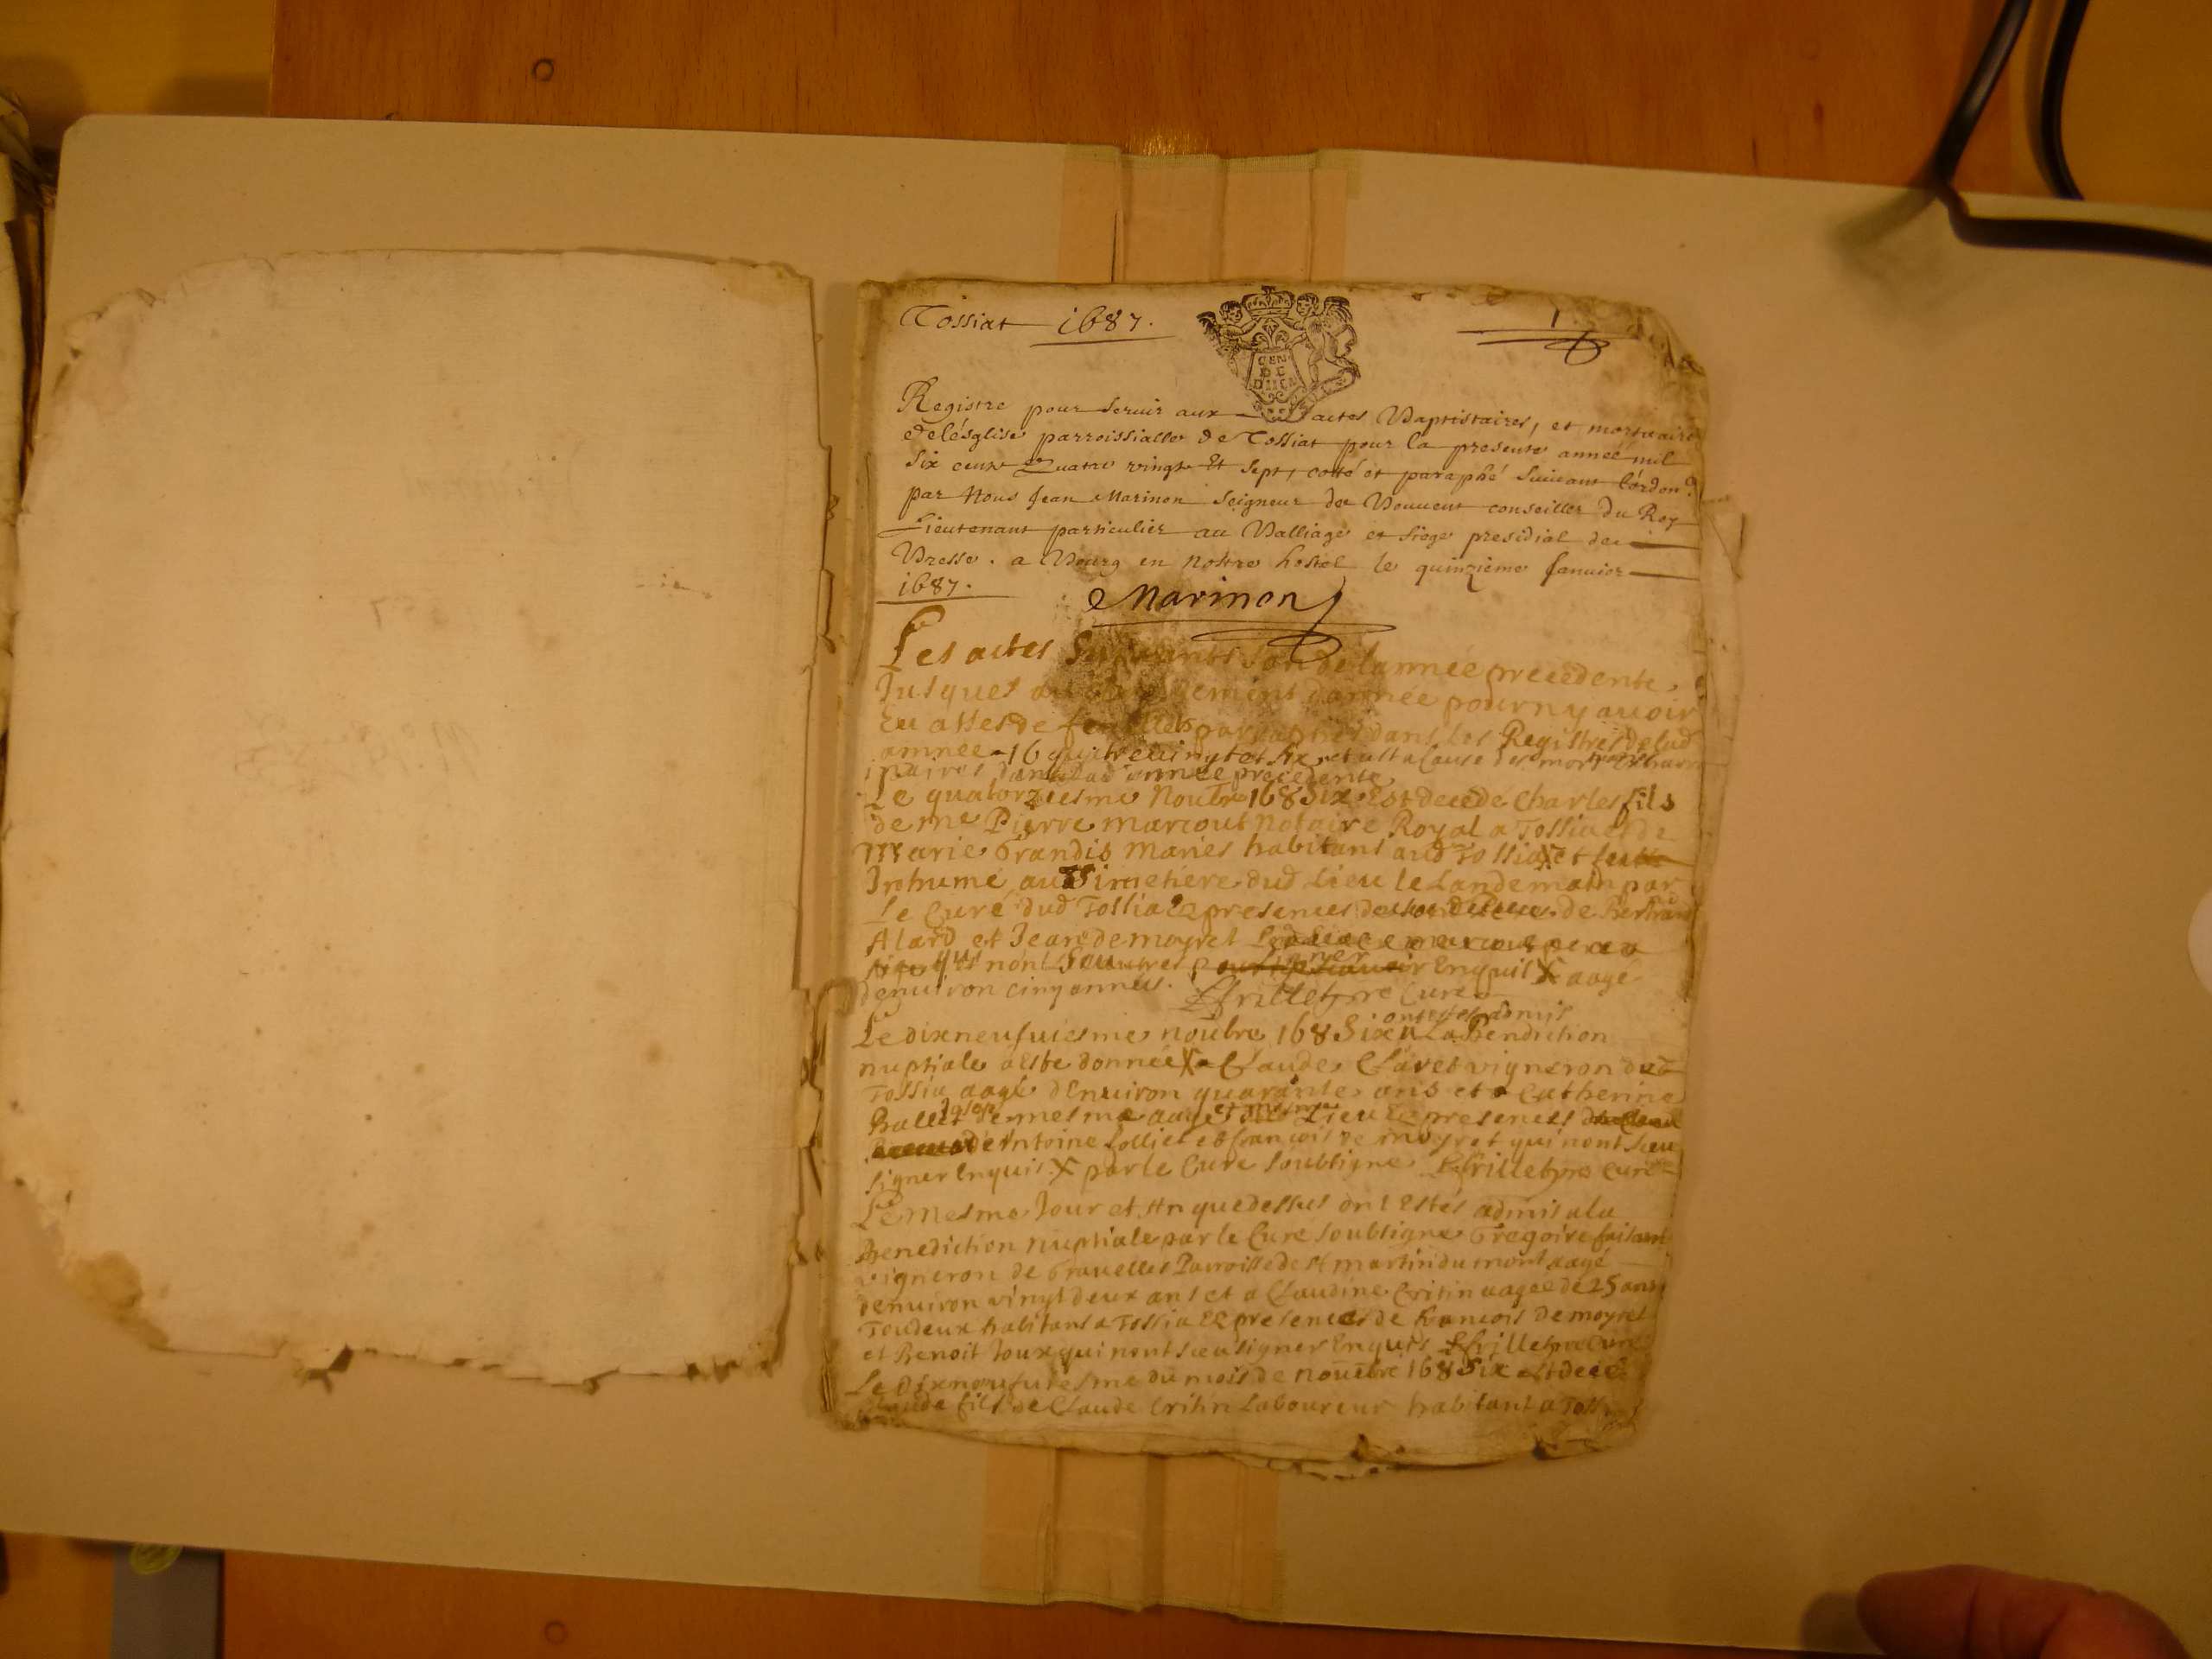 Tossiat 1687.
1
GEN
DE
Registre pour servir aux actes Baptistaires, et mortuaires
de lésglise parroissialle de Tossiat pour la presente année mil
six cents Quatre vingts Et sept, cotté et paraphé suivant l'ordon.
par Nous Jean Marinon seigneur de conseiller du Roy
Lieutenant particulier au Balliage et siege presidial de
Bresse. a Bourg en nostre hostel le quinzieme Januier
1687.
Marinon
Les actes Suivants sont de lannée precedente
Jusques au d'année pour ny auoir
Eu asses de feuillets dans les Registres de lad
année 16 quatre vingt et six et est a Cause des
dans lad année precedente
Le quatorziesme Noubre 168Six Est decedé Charles fils
de me Pierre marcout Notaire Royal a Tossia et de
Marie Grandis Mariés habitans aud Tossia et
Inhumé au Simetiere dud Lieu le Landemain par
Le Curé dud Tossia presences de de Bertrand
Alard et Jean demoyret
qui nont signer Enquis X aagé
denuiron cinq années. Frillet pre Curé
Le dixneufuiesme noubre 168Six ont estes admis a La Bendiction
nuptiale a este donnée X a Claude Claret vigneron dud
Tossia aagé d'Enuiron quarante ans et a Catherine
Ballet de mesme aage et mesme Lieu presences
de Antoine Follier et francois de moyret qui nont sceu
signer Enquis X par le Curé Soubsigné Frillet pre Curé
Le Mesme Jour et An que dessus ont Estés admis a la
Benediction nuptiale par le Curé soubsigné Gregoire faisant
vigneron de Grauelles Parroisse de st martin du mont aagé
denuiron vingt deux ans et a Claudine Critin aagée de 25 ans
Toudeux habitans a Tossia presences de francois Demoyret
et Benoit Joux qui nont sceu signer Enquis Frillet pre Curé
Le Dixneufuiesme du mois de nouebre 168Six est decedé
Claude fils de Claude Critin Laboureur habitant a Toss